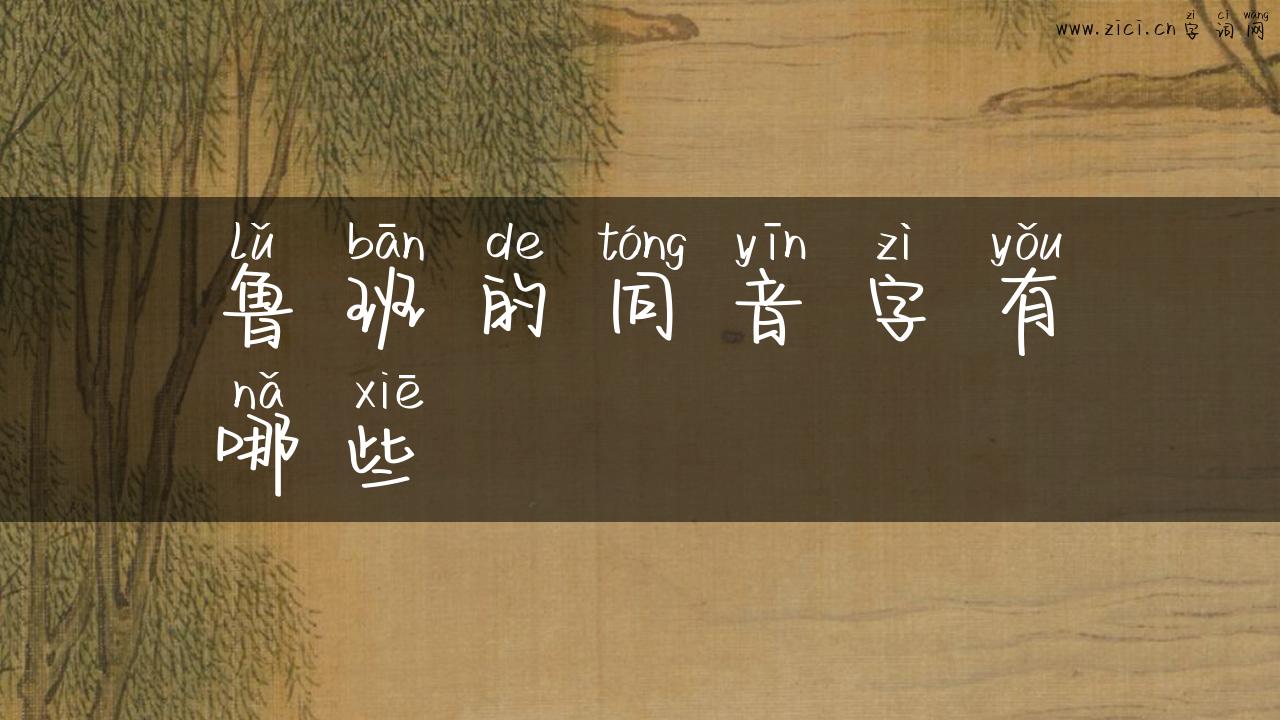 zì cí wǎng
www.zici.cn 字 词 网
lǔ bān de tóng yīn zì yǒu
鲁 班 的 同 音 字 有
nǎ xiē
哪 些